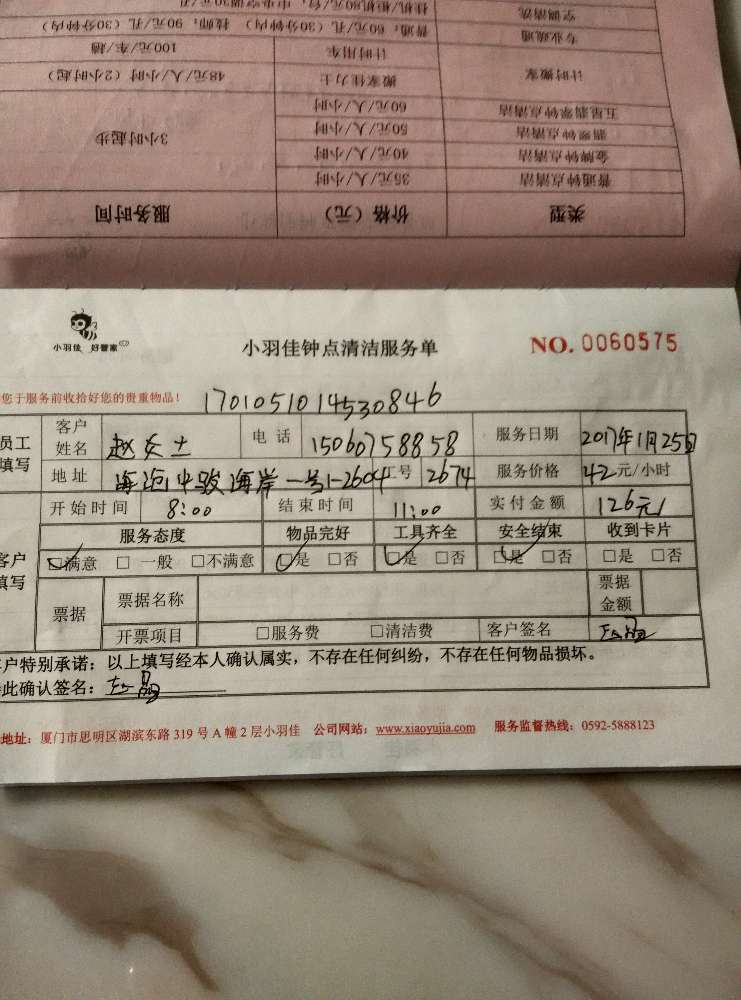 类型 价格（元） 服务时间
普通钟点清洁 35元/人/小时 3小时起步
金牌钟点清洁 40元/人/小时
翡翠钟点清洁 50元/人/小时
五星翡翠钟点清洁 60元/人/小时
计时搬家 搬家佳力士 48元/人/小时（2小时起）
计时用车 100元/车/趟
专业疏通 普通：60元/孔（30分钟内） 技师：90元/孔（30分钟内）
空调清洗
小羽佳 好管家
小羽佳钟点清洁服务单
NO. 0060575
您于服务前收拾好您的贵重物品！
1701051014530846
员工填写 客户姓名 赵女士 电话 15060758858 服务日期 2017年1月25日
地址 海沧中骏海岸一号1-2604 工号 2674 服务价格 42元/小时
开始时间 8:00 结束时间 11:00 实付金额 126元
客户填写 服务态度 物品完好 工具齐全 安全结束 收到卡片
☑满意 □一般 □不满意 ☑是 □否 ☑是 □否 ☑是 □否 □是 □否
票据 票据名称 票据金额
开票项目 □服务费 □清洁费 客户签名
客户特别承诺：以上填写经本人确认属实，不存在任何纠纷，不存在任何物品损坏。
此确认签名：
地址：厦门市思明区湖滨东路319号A幢2层小羽佳 公司网站：www.xiaoyujia.com 服务监督热线：0592-5888123